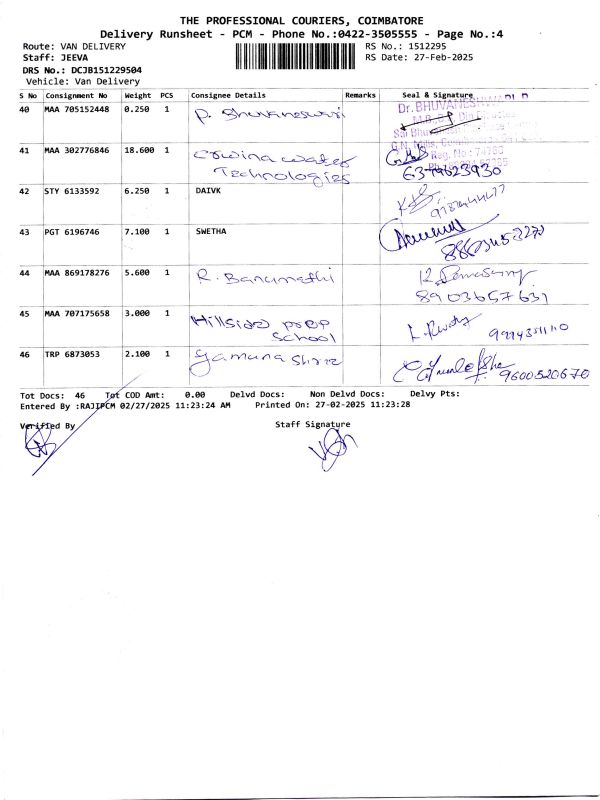 THE PROFESSIONAL COURIERS, COIMBATORE
Delivery Runsheet - PCM - Phone No.:0422-3505555 - Page No.:4
Route: VAN DELIVERY RS No.: 1512295
Staff: JEEVA RS Date: 27-Feb-2025
DRS No.: DCJB151229504
Vehicle: Van Delivery
S No Consignment No Weight PCS Consignee Details Remarks Seal & Signature
40 MAA 705152448 0.250 1 P. Bhuvaneswari
Dr. BHUVANESHWARI
41 MAA 302776846 18.600 1 Cowina Water
Technologies 6379623930
42 STY 6133592 6.250 1 DAIVK
43 PGT 6196746 7.100 1 SWETHA
44 MAA 869178276 5.600 1 R. Banumathi
8903657631
45 MAA 707175658 3.000 1 Hillside prep
School
46 TRP 6873053 2.100 1 Yamuna Shree 9600520670
Tot Docs: 46 Tot COD Amt: 0.00 Delvd Docs: Non Delvd Docs: Delvy Pts:
Entered By :RAJIPCM 02/27/2025 11:23:24 AM Printed On: 27-02-2025 11:23:28
Verified By Staff Signature